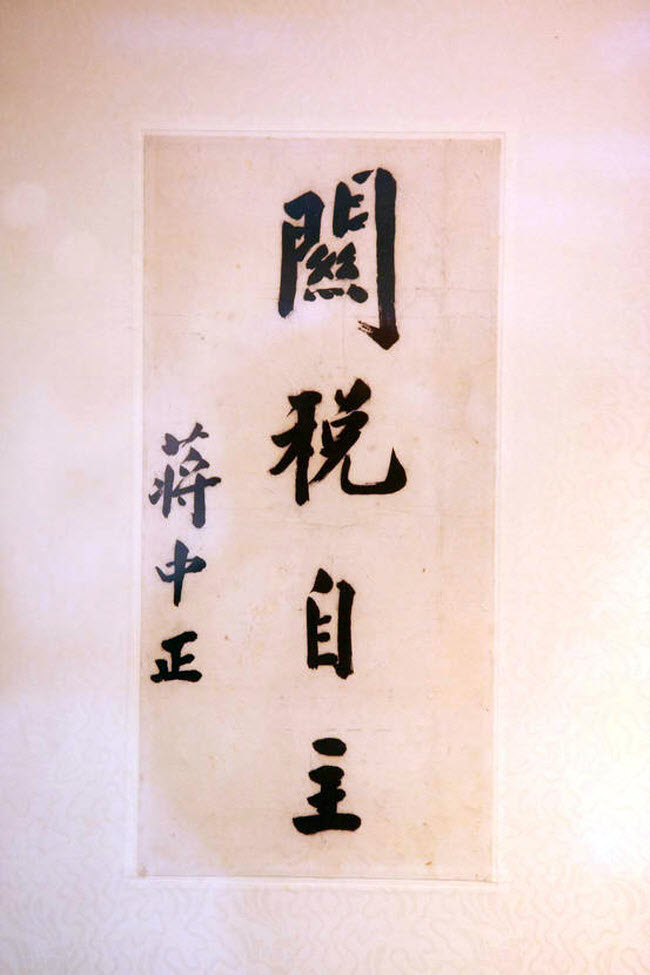 關税自主
蔣中正